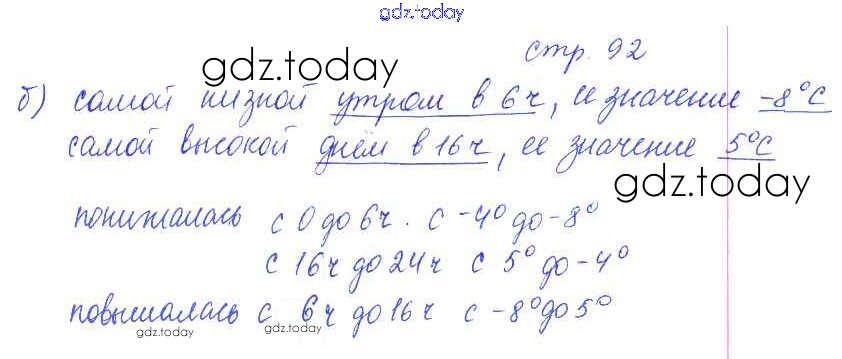 gdz.today
стр. 92
gdz.today
б) самой низкой утром в 6ч, ее значение -8°С
самой высокой днём в 16ч, ее значение 5°С
gdz.today
понижалась с 0 до 6ч. с -4° до -8°
с 16ч до 24ч с 5° до -4°
повышалась с 6ч до 16ч с -8° до 5°
gdz.today gdz.today